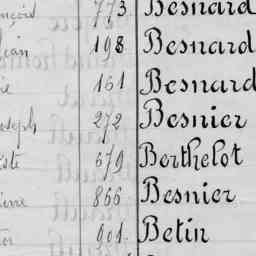 773 Besnard
198 Besnard
161 Besnard
oseph 272 Besnier
iste 679 Berthelot
866 Besnier
901. Betin